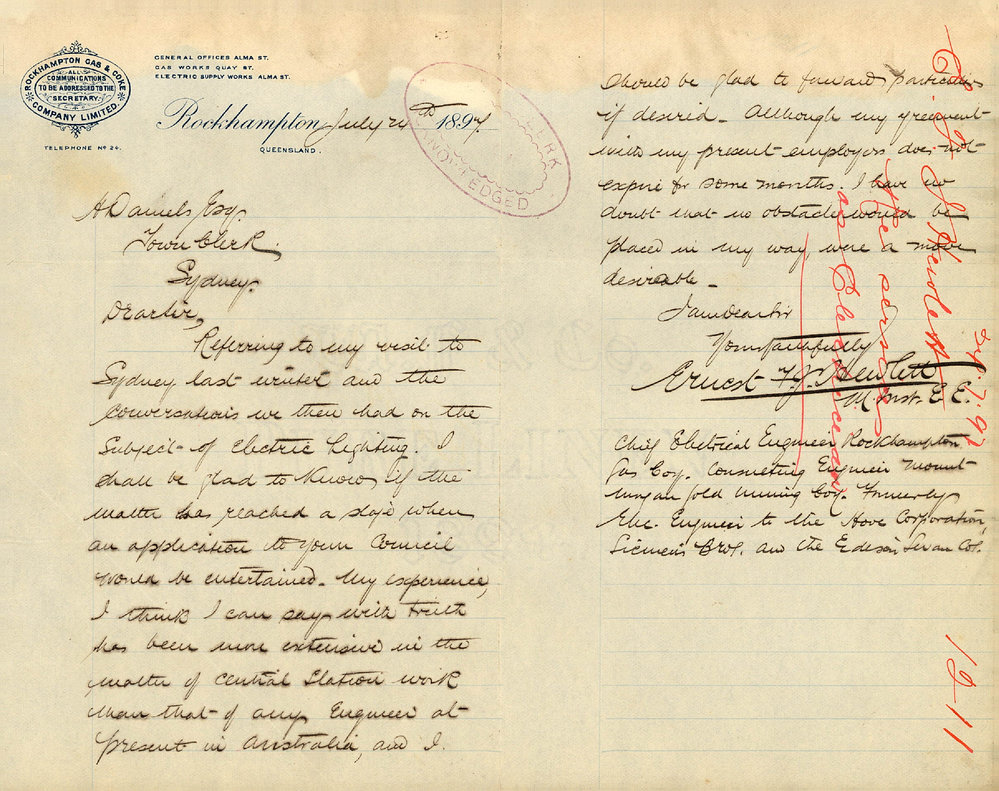 ROCKHAMPTON GAS & COKE
COMPANY LIMITED.
ALL
COMMUNICATIONS
TO BE ADDRESSED TO THE
SECRETARY.
TELEPHONE No 24.
GENERAL OFFICES ALMA ST.
GAS WORKS QUAY ST.
ELECTRIC SUPPLY WORKS ALMA ST.
Rockhampton July 24th 1897
QUEENSLAND.
ADaniels Esq.
Town Clerk,
Sydney.
Dear Sir,
Referring to my visit to
Sydney last winter and the
conversations we then had on the
subject of Electric Lighting. I
shall be glad to know if the
matter has reached a stage when
an application to your Council
would be entertained. My experience,
I think I can say with truth
has been more extensive in the
matter of Central Station work
than that of any Engineer at
present in Australia, and I
should be glad to forward particulars
if desired. Although my agreement
with my present employers does not
expire for some months. I have no
doubt that no obstacle would be
placed in my way, were a move
desireable.
I am dear Sir
Yours faithfully
Ernest F.J. Hewlett
M Inst. E E.
Chief Electrical Engineer Rockhampton
Gas Coy. Consulting Engineer Mount
Morgan Gold Mining Coy. Formerly
Elec. Engineer to the Hove Corporation,
Siemens Bros. and the Edison Swan Co.
E. F. J. Hewlett
services
as Electrician
24.7.97
1211